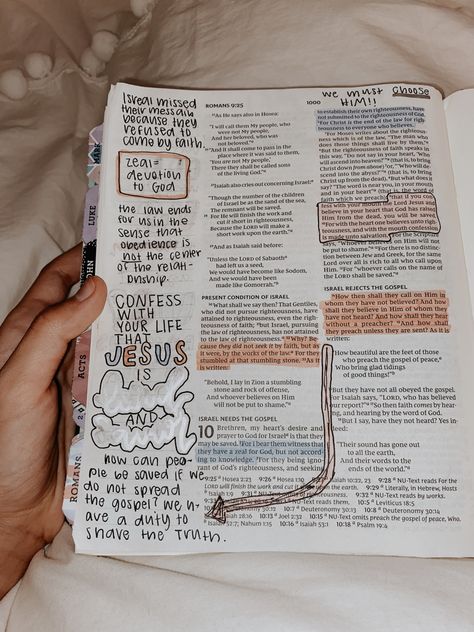 Isreal missed
their messiah
because they
refused to
come by faith.
zeal=
devotion
to GOD
the law ends
for us in the
sense that
obedience is
not the center
of the relat-
ionship.
CONFESS
WITH
YOUR LIFE
THAT
JESUS
IS
AND
how can peo-
ple be saved if we
do not spread
the gospel? we h-
ave a duty to
share the truth.
MARK
LUKE
JOHN
ACTS
ROMANS
ROMANS 9:25
"As He says also in Hosea:
"I will call them My people, who
were not My people,
And her beloved, who was
not beloved."
"And it shall come to pass in the
place where it was said to them,
'You are not My people,'
There they shall be called sons
of the living God."
Isaiah also cries out concerning Israel:
"Though the number of the children
of Israel be as the sand of the sea,
The remnant will be saved.
For He will finish the work and
cut it short in righteousness,
Because the LORD will make a
short work upon the earth."
And as Isaiah said before:
"Unless the LORD of Sabaoth
had left us a seed,
We would have become like Sodom,
And we would have been
made like Gomorrah."
PRESENT CONDITION OF ISRAEL
What shall we say then? That Gentiles,
who did not pursue righteousness, have
attained to righteousness, even the righ-
teousness of faith; but Israel, pursuing
the law of righteousness, has not attained
to the law of righteousness. Why? Be-
cause they did not seek it by faith, but as
it were, by the works of the law. For they
stumbled at that stumbling stone. As it
is written:
"Behold, I lay in Zion a stumbling
stone and rock of offense,
And whoever believes on Him
will not be put to shame."
ISRAEL NEEDS THE GOSPEL
10 Brethren, my heart's desire and
prayer to God for Israel is that they
may be saved. For I bear them witness that
they have a zeal for God, but not accord-
ing to knowledge. For they being igno-
rant of God's righteousness, and seeking
we must choose
HIM!!
1000
to establish their own righteousness, have
not submitted to the righteousness of God.
For Christ is the end of the law for righ-
teousness to everyone who believes.
For Moses writes about the righteous-
ness which is of the law, "The man who
does those things shall live by them."
But the righteousness of faith speaks in
this way, "Do not say in your heart, 'Who
will ascend into heaven?'" (that is, to bring
Christ down from above) or, "'Who will de-
scend into the abyss?'" (that is, to bring
Christ up from the dead). But what does it
say? "The word is near you, in your mouth
and in your heart" (that is, the word of
faith which we preach): that if you con-
fess with your mouth the Lord Jesus and
believe in your heart that God has raised
Him from the dead, you will be saved.
For with the heart one believes unto righ-
teousness, and with the mouth confession
is made unto salvation. For the Scripture
says, "Whoever believes on Him will not
be put to shame." For there is no distinc-
tion between Jew and Greek, for the same
Lord over all is rich to all who call upon
Him. For "whoever calls on the name of
the LORD shall be saved."
ISRAEL REJECTS THE GOSPEL
How then shall they call on Him in
whom they have not believed? And how
shall they believe in Him of whom they
have not heard? And how shall they hear
without a preacher? And how shall
they preach unless they are sent? As it is
written:
How beautiful are the feet of those
who preach the gospel of peace,
Who bring glad tidings
of good things!"
But they have not all obeyed the gospel.
For Isaiah says, "LORD, who has believed
our report?" So then faith comes by hear-
ing, and hearing by the word of God.
But I say, have they not heard? Yes in-
"Their sound has gone out
to all the earth,
And their words to the
ends of the world."